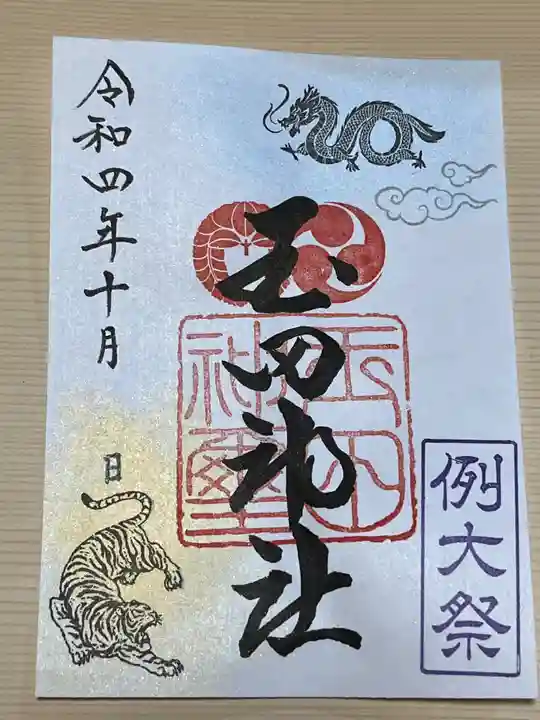 例大祭
玉田神社
玉田
神璽
令和四年十月
日